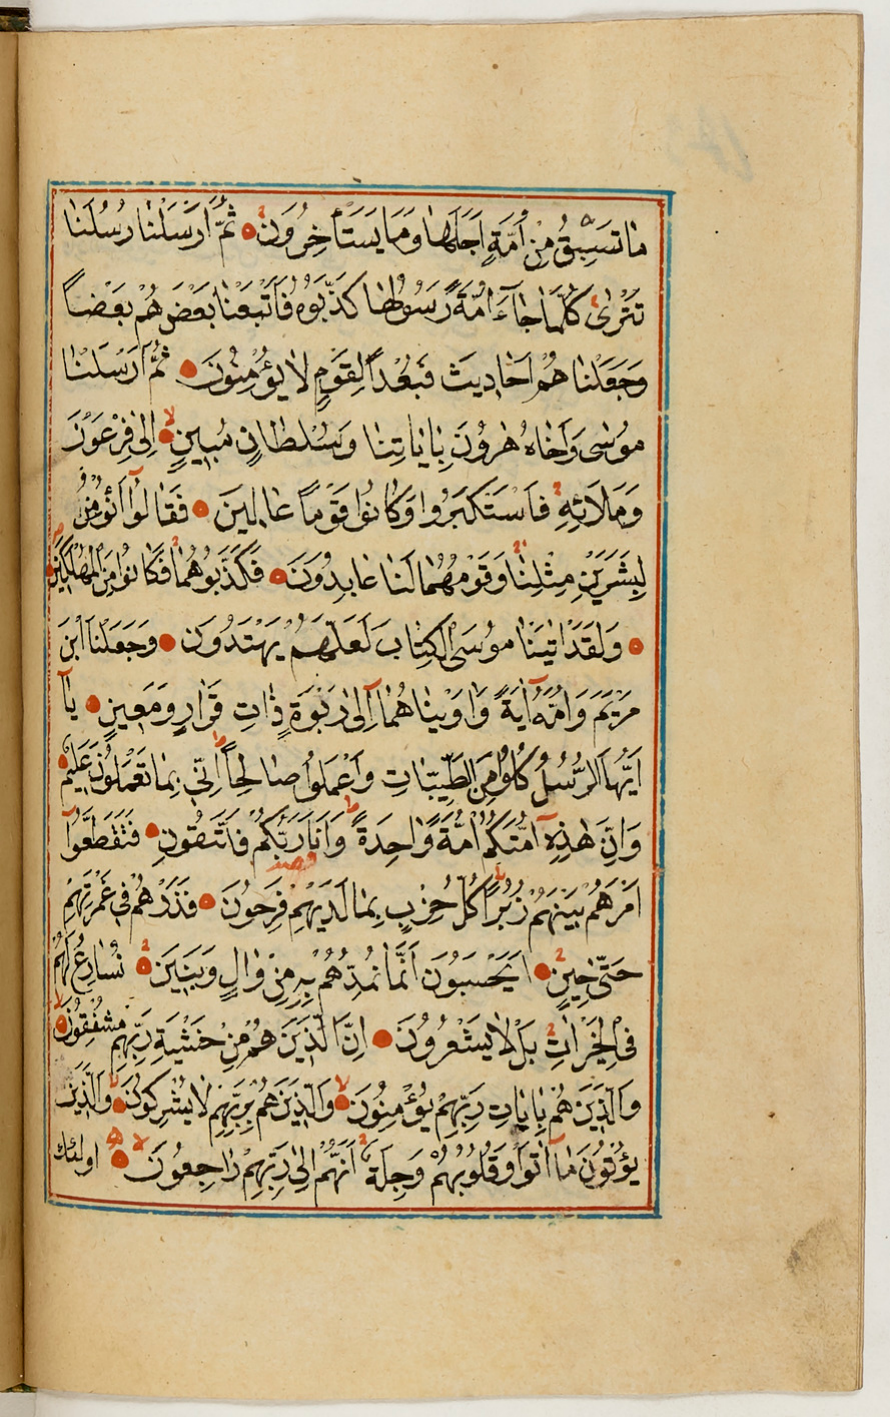 مَا تَسْبِقُ مِنْ اُمَّةٍ اَجَلَهَا وَمَا يَسْتَأْخِرُونَ ثُمَّ اَرْسَلْنَا رُسُلَنَا
تَتْرٰى كُلَّمَا جَاۤءَ اُمَّةً رَسُولُهَا كَذَّبُوهُ فَاَتْبَعْنَا بَعْضَهُمْ بَعْضًا
وَجَعَلْنَا هُمْ اَحَادِيثَ فَبُعْدًا لِقَوْمٍ لَا يُؤْمِنُونَ ثُمَّ اَرْسَلْنَا
مُوسٰى وَاَخَاهُ هٰرُونَ بِاٰيَاتِنَا وَسُلْطَانٍ مُبِينٍ اِلٰى فِرْعَوْنَ
وَمَلَائِهِ فَاسْتَكْبَرُوا وَكَانُوا قَوْمًا عَالِينَ فَقَالُوۤا اَنُؤْمِنُ
لِبَشَرَيْنِ مِثْلِنَا وَقَوْمُهُمَا لَنَا عَابِدُونَ فَكَذَّبُوهُمَا فَكَانُوا مِنَ الْمُهْلَكِينَ
وَلَقَدْ اٰتَيْنَا مُوسَى الْكِتَابَ لَعَلَّهُمْ يَهْتَدُونَ وَجَعَلْنَا ابْنَ
مَرْيَمَ وَاُمَّهُۤ اٰيَةً وَاٰوَيْنَا هُمَاۤ اِلٰى رَبْوَةٍ ذَاتِ قَرَارٍ وَمَعِينٍ يَاۤ
اَيُّهَا الرُّسُلُ كُلُوا مِنَ الطَّيِّبَاتِ وَاعْمَلُوا صَالِحًا اِنِّى بِمَا تَعْمَلُونَ عَلِيمٌ
وَاِنَّ هٰذِهِۤ اُمَّتُكُمْ اُمَّةً وَاحِدَةً وَاَنَا رَبُّكُمْ فَاتَّقُونِ فَتَقَطَّعُوۤا
اَمْرَهُمْ بَيْنَهُمْ زُبُرًا كُلُّ حِزْبٍ بِمَا لَدَيْهِمْ فَرِحُونَ فَذَرْهُمْ فِى غَمْرَتِهِمْ
حَتّٰى حِينٍ اَيَحْسَبُونَ اَنَّمَا نُمِدُّهُمْ بِهِ مِنْ مَالٍ وَبَنِينَ نُسَارِعُ لَهُمْ
فِى الْخَيْرَاتِ بَلْ لَا يَشْعُرُونَ اِنَّ الَّذِينَ هُمْ مِنْ خَشْيَةِ رَبِّهِمْ مُشْفِقُونَ
وَالَّذِينَ هُمْ بِاٰيَاتِ رَبِّهِمْ يُؤْمِنُونَ وَالَّذِينَ هُمْ بِرَبِّهِمْ لَا يُشْرِكُونَ وَالَّذِينَ
يُؤْتُونَ مَاۤ اٰتَوْا وَقُلُوبُهُمْ وَجِلَةٌ اَنَّهُمْ اِلٰى رَبِّهِمْ رَاجِعُونَ
اولئك